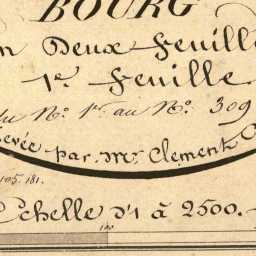 BOURG
en Deux Feuille
1.e Feuille
du N.o 1.er au N.o 309
levée par Mr. Clement
105. 181.
Echelle d'1 à 2500.